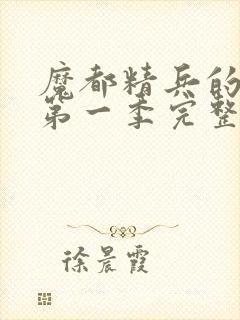 魔都精兵的
第一季完整
徐晨霞